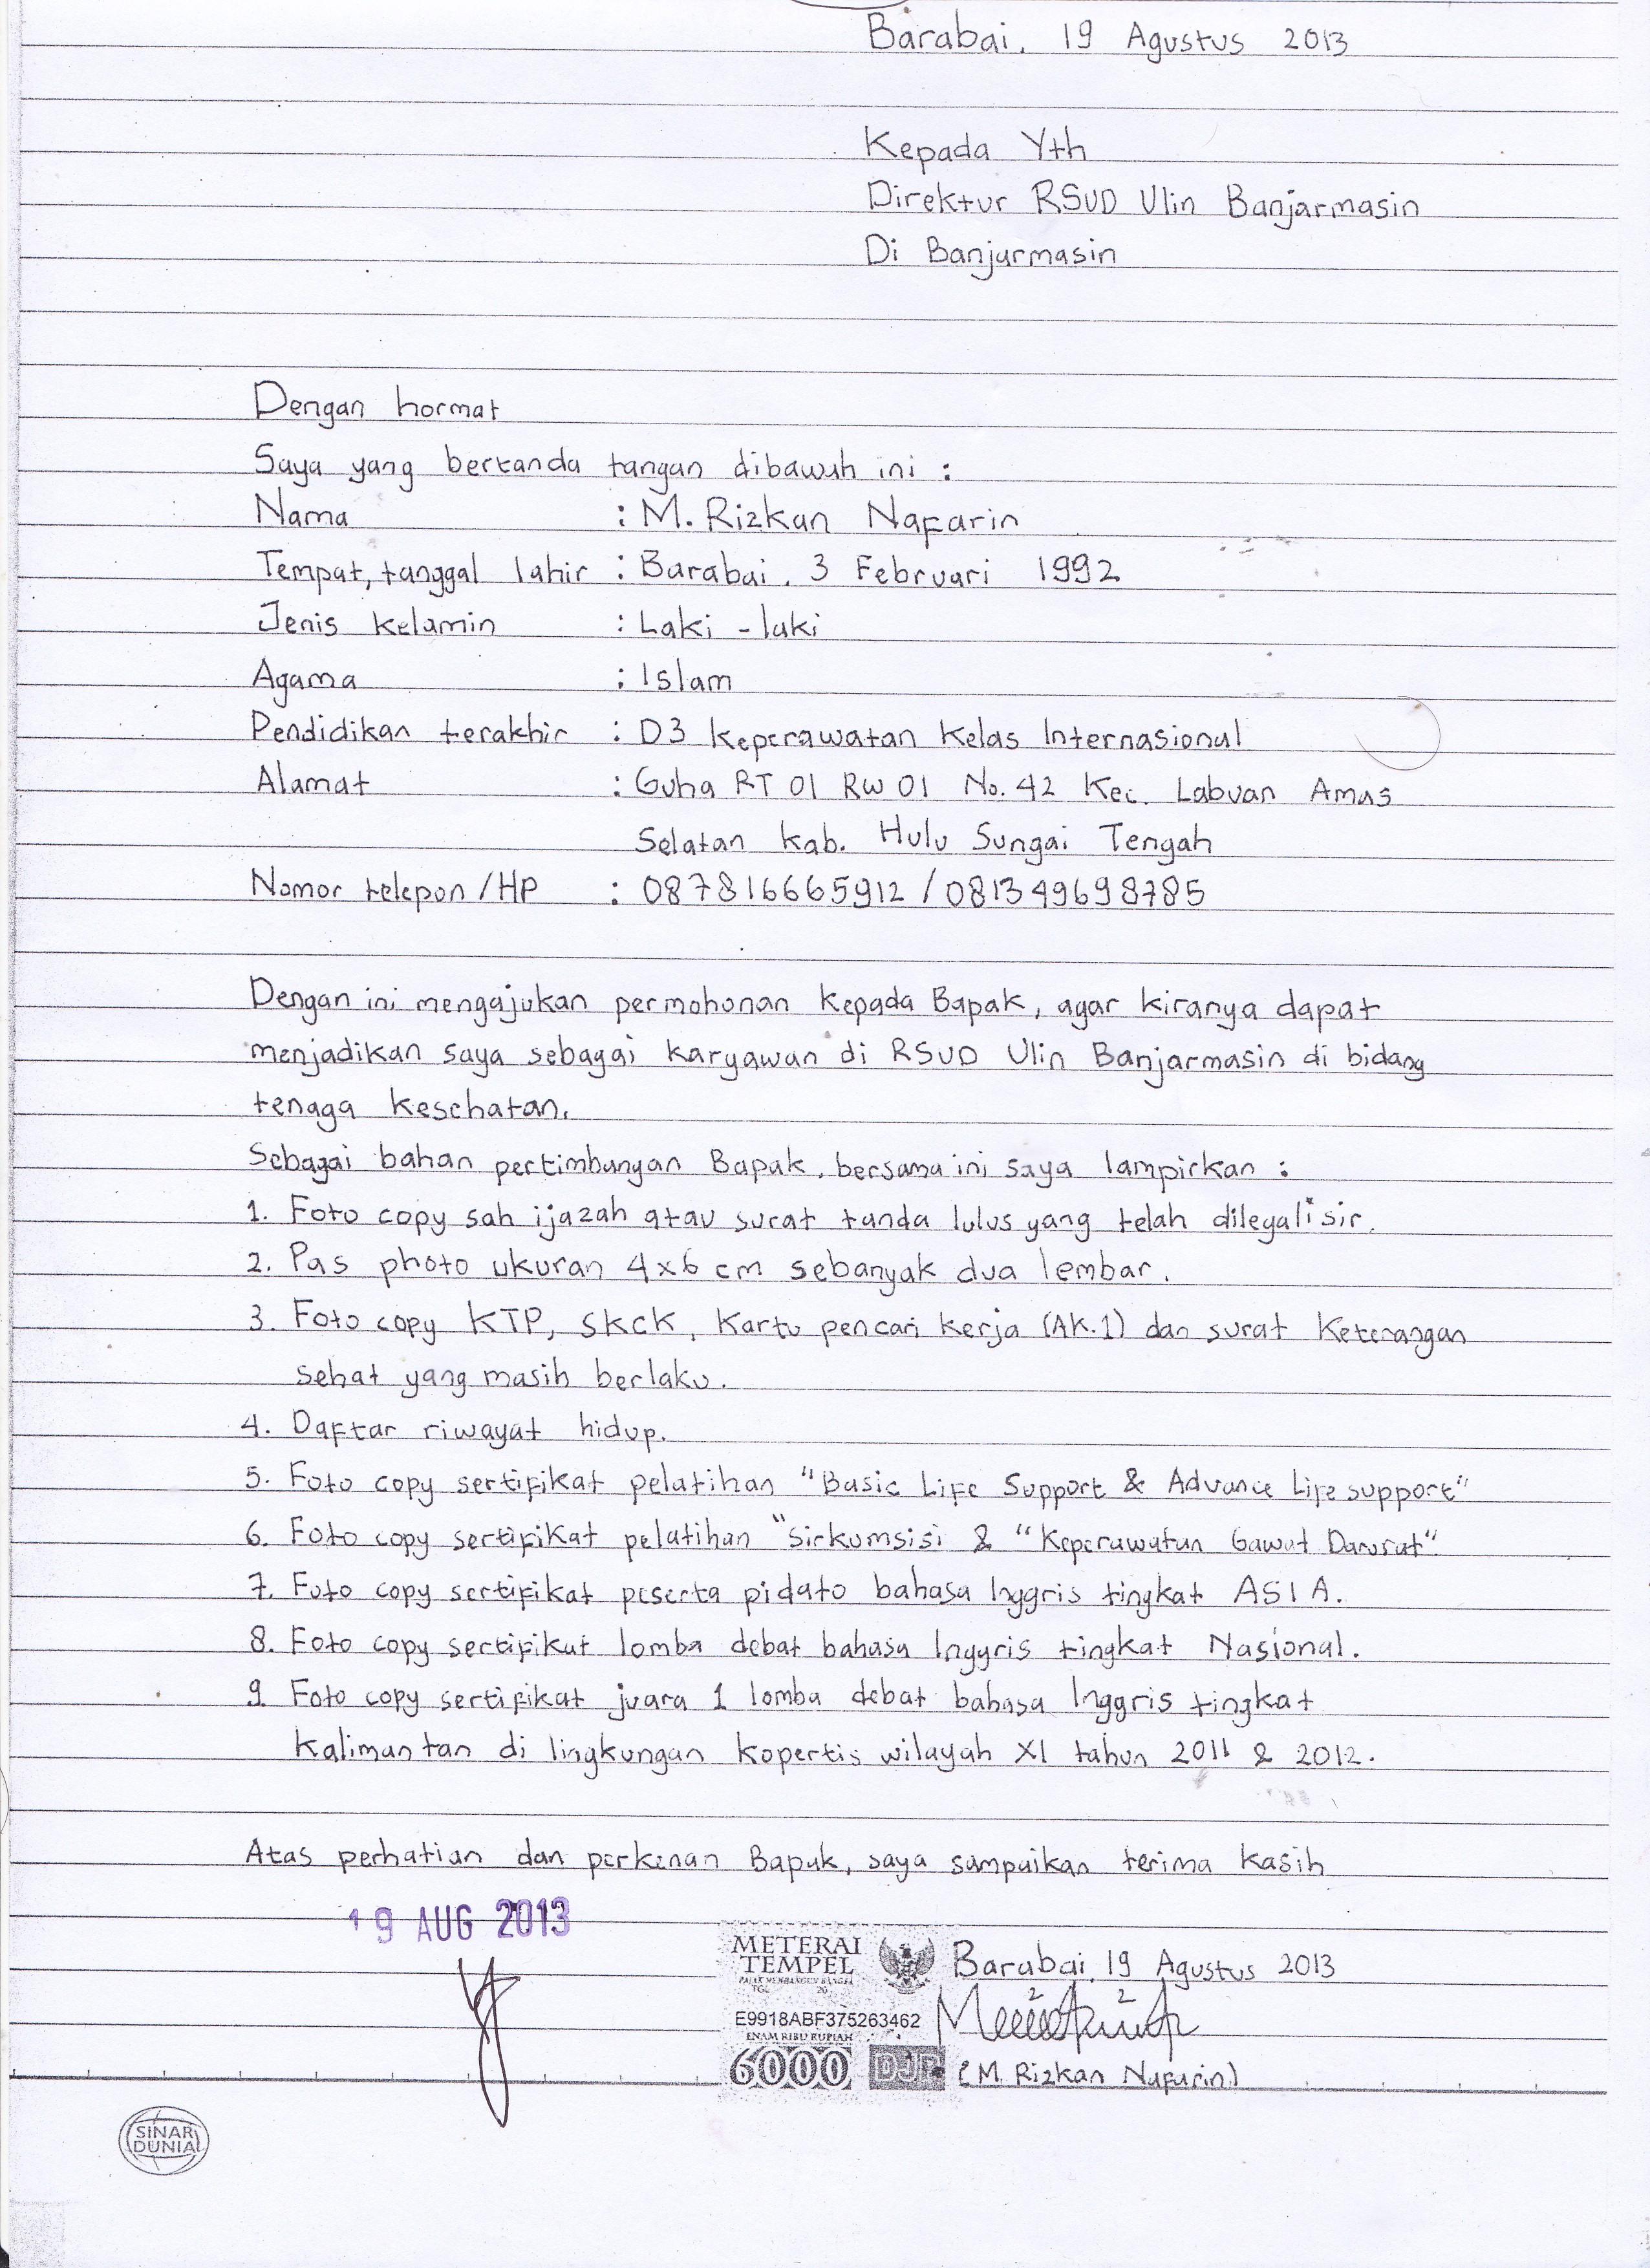 Barabai, 19 Agustus 2013
Kepada Yth
Direktur RSUD Ulin Banjarmasin
Di Banjarmasin
Dengan hormat
Saya yang bertanda tangan dibawah ini :
Nama : M. Rizkan Nafarin
Tempat, tanggal lahir : Barabai, 3 Februari 1992
Jenis kelamin : Laki - laki
Agama : Islam
Pendidikan terakhir : D3 Keperawatan Kelas Internasional
Alamat : Guha RT 01 RW 01 No. 42 Kec. Labuan Amas
Selatan Kab. Hulu Sungai Tengah
Nomor telepon/HP : 087816665912 / 081349698785
Dengan ini mengajukan permohonan kepada Bapak, agar kiranya dapat
menjadikan saya sebagai karyawan di RSUD Ulin Banjarmasin di bidang
tenaga kesehatan.
Sebagai bahan pertimbangan Bapak, bersama ini saya lampirkan :
1. Foto copy sah ijazah atau surat tanda lulus yang telah dilegalisir.
2. Pas photo ukuran 4x6 cm sebanyak dua lembar.
3. Foto copy KTP, SKCK, Kartu pencari kerja (AK.1) dan surat Keterangan
sehat yang masih berlaku.
4. Daftar riwayat hidup.
5. Foto copy sertifikat pelatihan "Basic Life Support & Advance Life support"
6. Foto copy sertifikat pelatihan "Sirkumsisi & "Keperawatan Gawat Darurat".
7. Foto copy sertifikat peserta pidato bahasa Inggris tingkat ASIA.
8. Foto copy sertifikat lomba debat bahasa Inggris tingkat Nasional.
9 Foto copy sertifikat juara 1 lomba debat bahasa Inggris tingkat
Kalimantan di lingkungan kopertis wilayah XI tahun 2011 & 2012.
Atas perhatian dan perkenan Bapak, saya sampaikan terima kasih
19 AUG 2013
METERAI
TEMPEL
PAJAK MEMBANGUN BANGSA
TGL 20
E9918ABF375263462
ENAM RIBU RUPIAH
6000 DJP
Barabai, 19 Agustus 2013
(M. Rizkan Nafarin)
SINAR
DUNIA